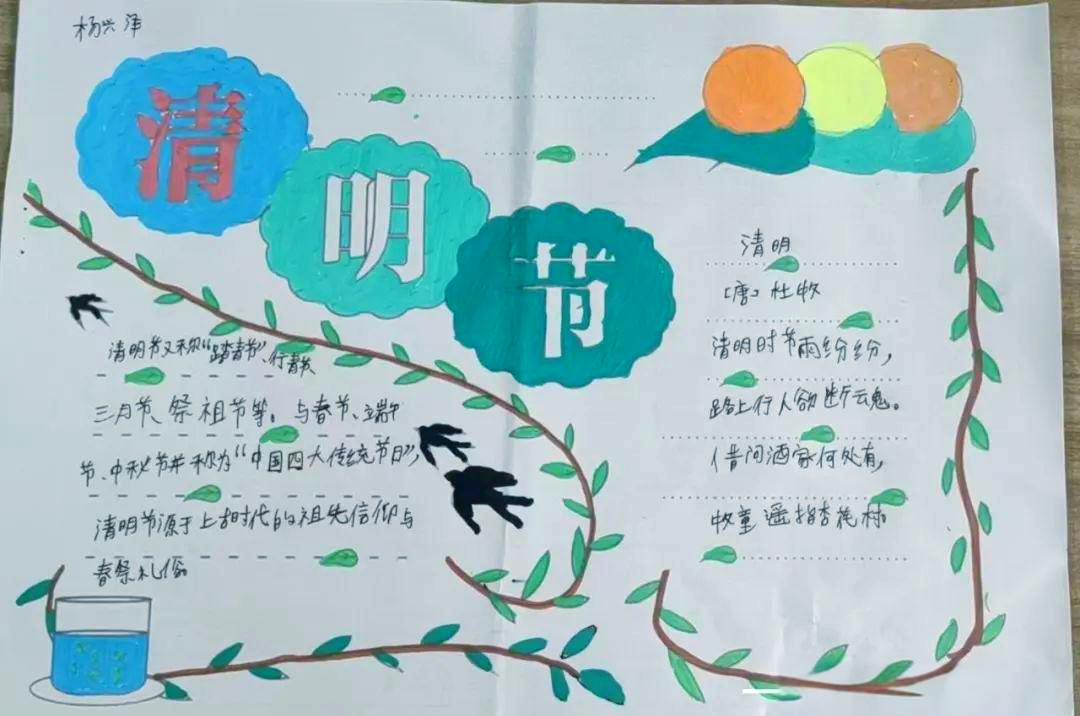 杨兴泽
清明节
清明节又称“踏青节”、行青节、
三月节、祭祖节等。与春节、端午
节、中秋节并称为“中国四大传统节日”,
清明节源于上古时代的祖先信仰与
春祭礼俗
清明
[唐] 杜牧
清明时节雨纷纷,
路上行人欲断魂。
借问酒家何处有,
牧童遥指杏花村